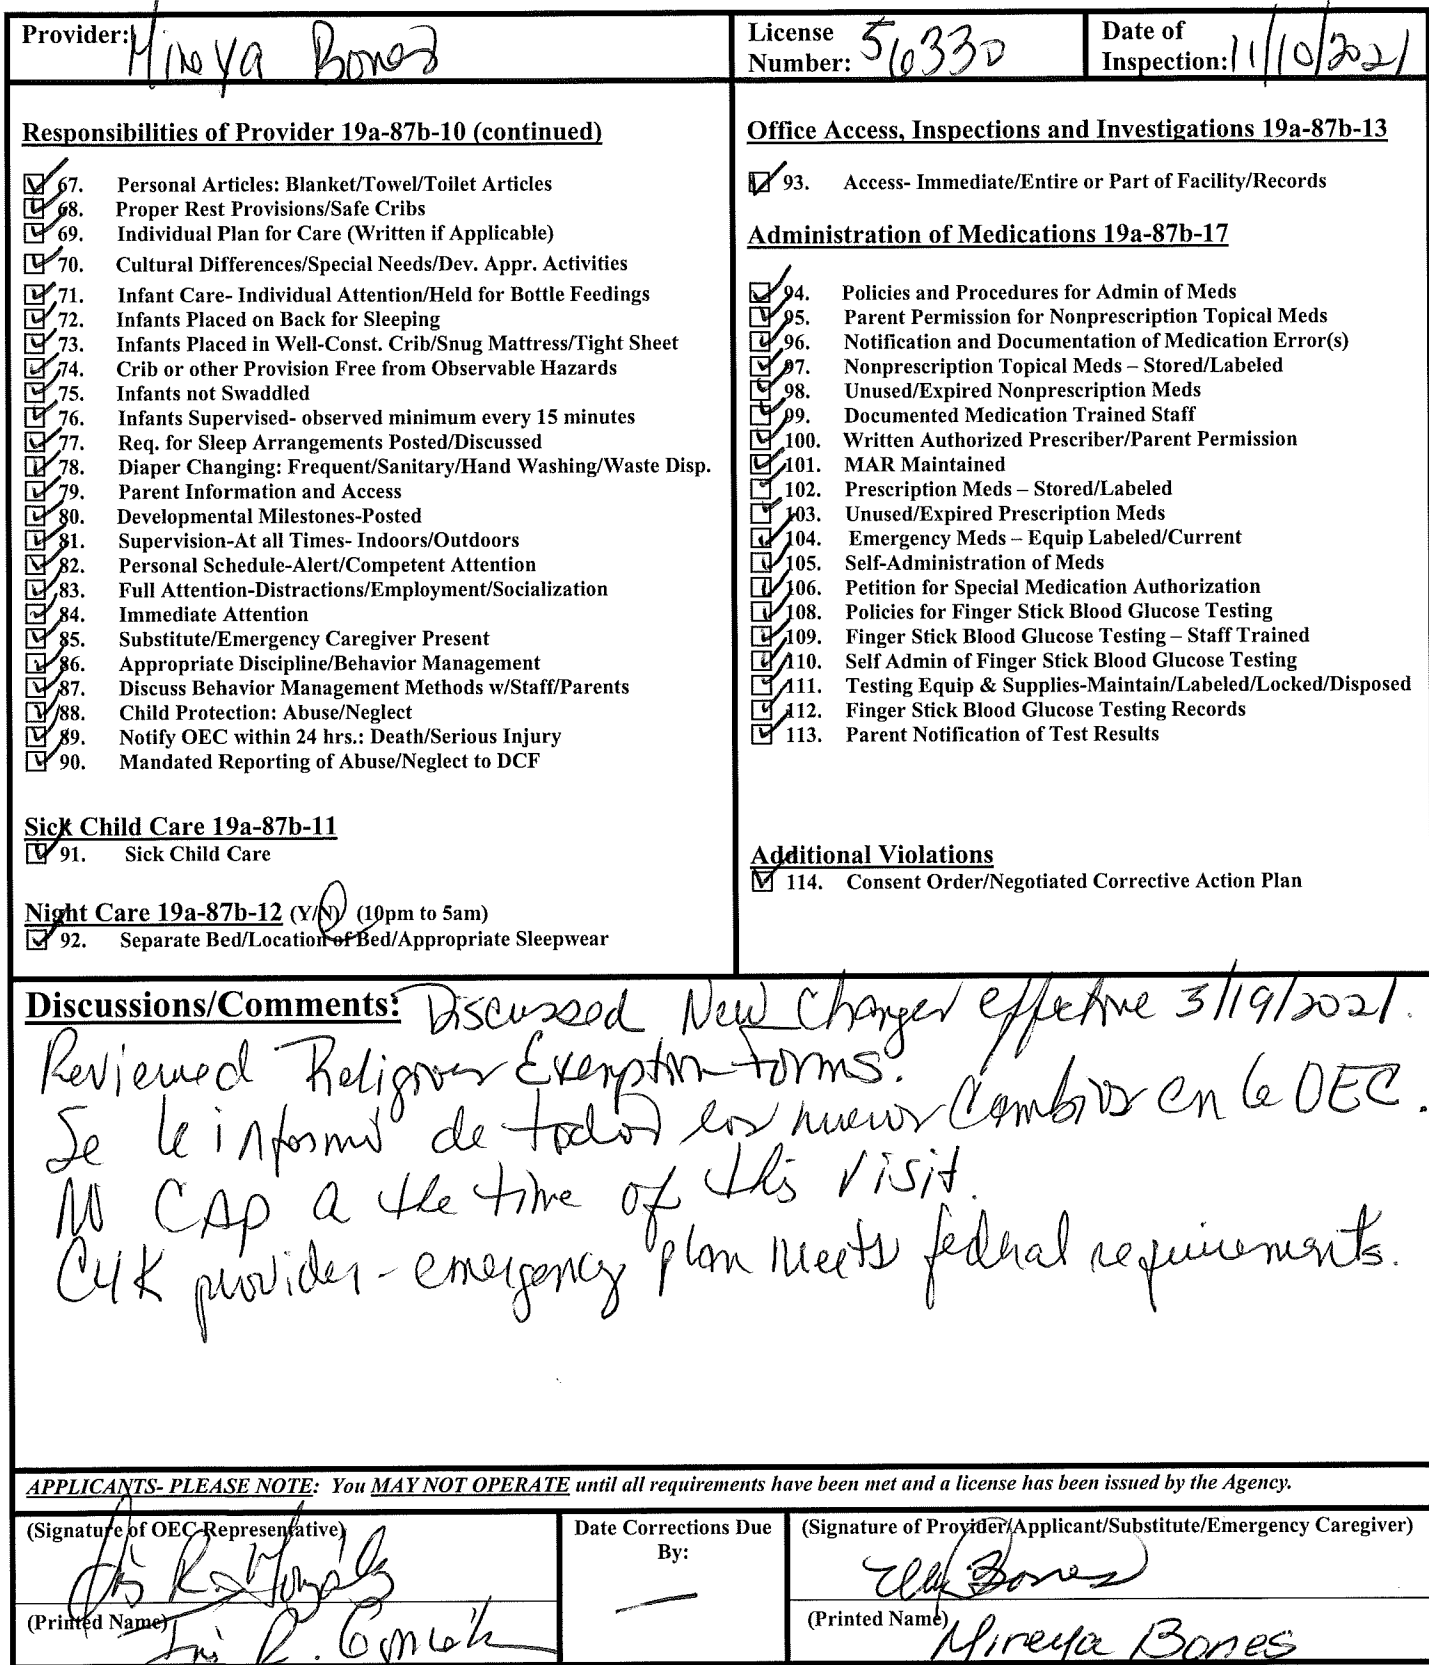 Provider: Mireya Bones
License Number: 56330
Date of Inspection: 11/10/2021
Responsibilities of Provider 19a-87b-10 (continued)
67. Personal Articles: Blanket/Towel/Toilet Articles
68. Proper Rest Provisions/Safe Cribs
69. Individual Plan for Care (Written if Applicable)
70. Cultural Differences/Special Needs/Dev. Appr. Activities
71. Infant Care- Individual Attention/Held for Bottle Feedings
72. Infants Placed on Back for Sleeping
73. Infants Placed in Well-Const. Crib/Snug Mattress/Tight Sheet
74. Crib or other Provision Free from Observable Hazards
75. Infants not Swaddled
76. Infants Supervised- observed minimum every 15 minutes
77. Req. for Sleep Arrangements Posted/Discussed
78. Diaper Changing: Frequent/Sanitary/Hand Washing/Waste Disp.
79. Parent Information and Access
80. Developmental Milestones-Posted
81. Supervision-At all Times- Indoors/Outdoors
82. Personal Schedule-Alert/Competent Attention
83. Full Attention-Distractions/Employment/Socialization
84. Immediate Attention
85. Substitute/Emergency Caregiver Present
86. Appropriate Discipline/Behavior Management
87. Discuss Behavior Management Methods w/Staff/Parents
88. Child Protection: Abuse/Neglect
89. Notify OEC within 24 hrs.: Death/Serious Injury
90. Mandated Reporting of Abuse/Neglect to DCF
Sick Child Care 19a-87b-11
91. Sick Child Care
Night Care 19a-87b-12 (Y/N) (10pm to 5am)
92. Separate Bed/Location of Bed/Appropriate Sleepwear
Office Access, Inspections and Investigations 19a-87b-13
93. Access- Immediate/Entire or Part of Facility/Records
Administration of Medications 19a-87b-17
94. Policies and Procedures for Admin of Meds
95. Parent Permission for Nonprescription Topical Meds
96. Notification and Documentation of Medication Error(s)
97. Nonprescription Topical Meds – Stored/Labeled
98. Unused/Expired Nonprescription Meds
99. Documented Medication Trained Staff
100. Written Authorized Prescriber/Parent Permission
101. MAR Maintained
102. Prescription Meds – Stored/Labeled
103. Unused/Expired Prescription Meds
104. Emergency Meds – Equip Labeled/Current
105. Self-Administration of Meds
106. Petition for Special Medication Authorization
108. Policies for Finger Stick Blood Glucose Testing
109. Finger Stick Blood Glucose Testing – Staff Trained
110. Self Admin of Finger Stick Blood Glucose Testing
111. Testing Equip & Supplies-Maintain/Labeled/Locked/Disposed
112. Finger Stick Blood Glucose Testing Records
113. Parent Notification of Test Results
Additional Violations
114. Consent Order/Negotiated Corrective Action Plan
Discussions/Comments: Discussed New Changes effective 3/19/2021.
Reviewed Religious Exemption forms.
Se le informó de todos los nuevos Cambios en la OEC.
No CAP a the time of this visit.
C4K provider - emergency plan meets federal requirements.
APPLICANTS- PLEASE NOTE: You MAY NOT OPERATE until all requirements have been met and a license has been issued by the Agency.
(Signature of OEC Representative)
(Printed Name)
Date Corrections Due By: —
(Signature of Provider/Applicant/Substitute/Emergency Caregiver)
Bones
(Printed Name) Mireya Bones